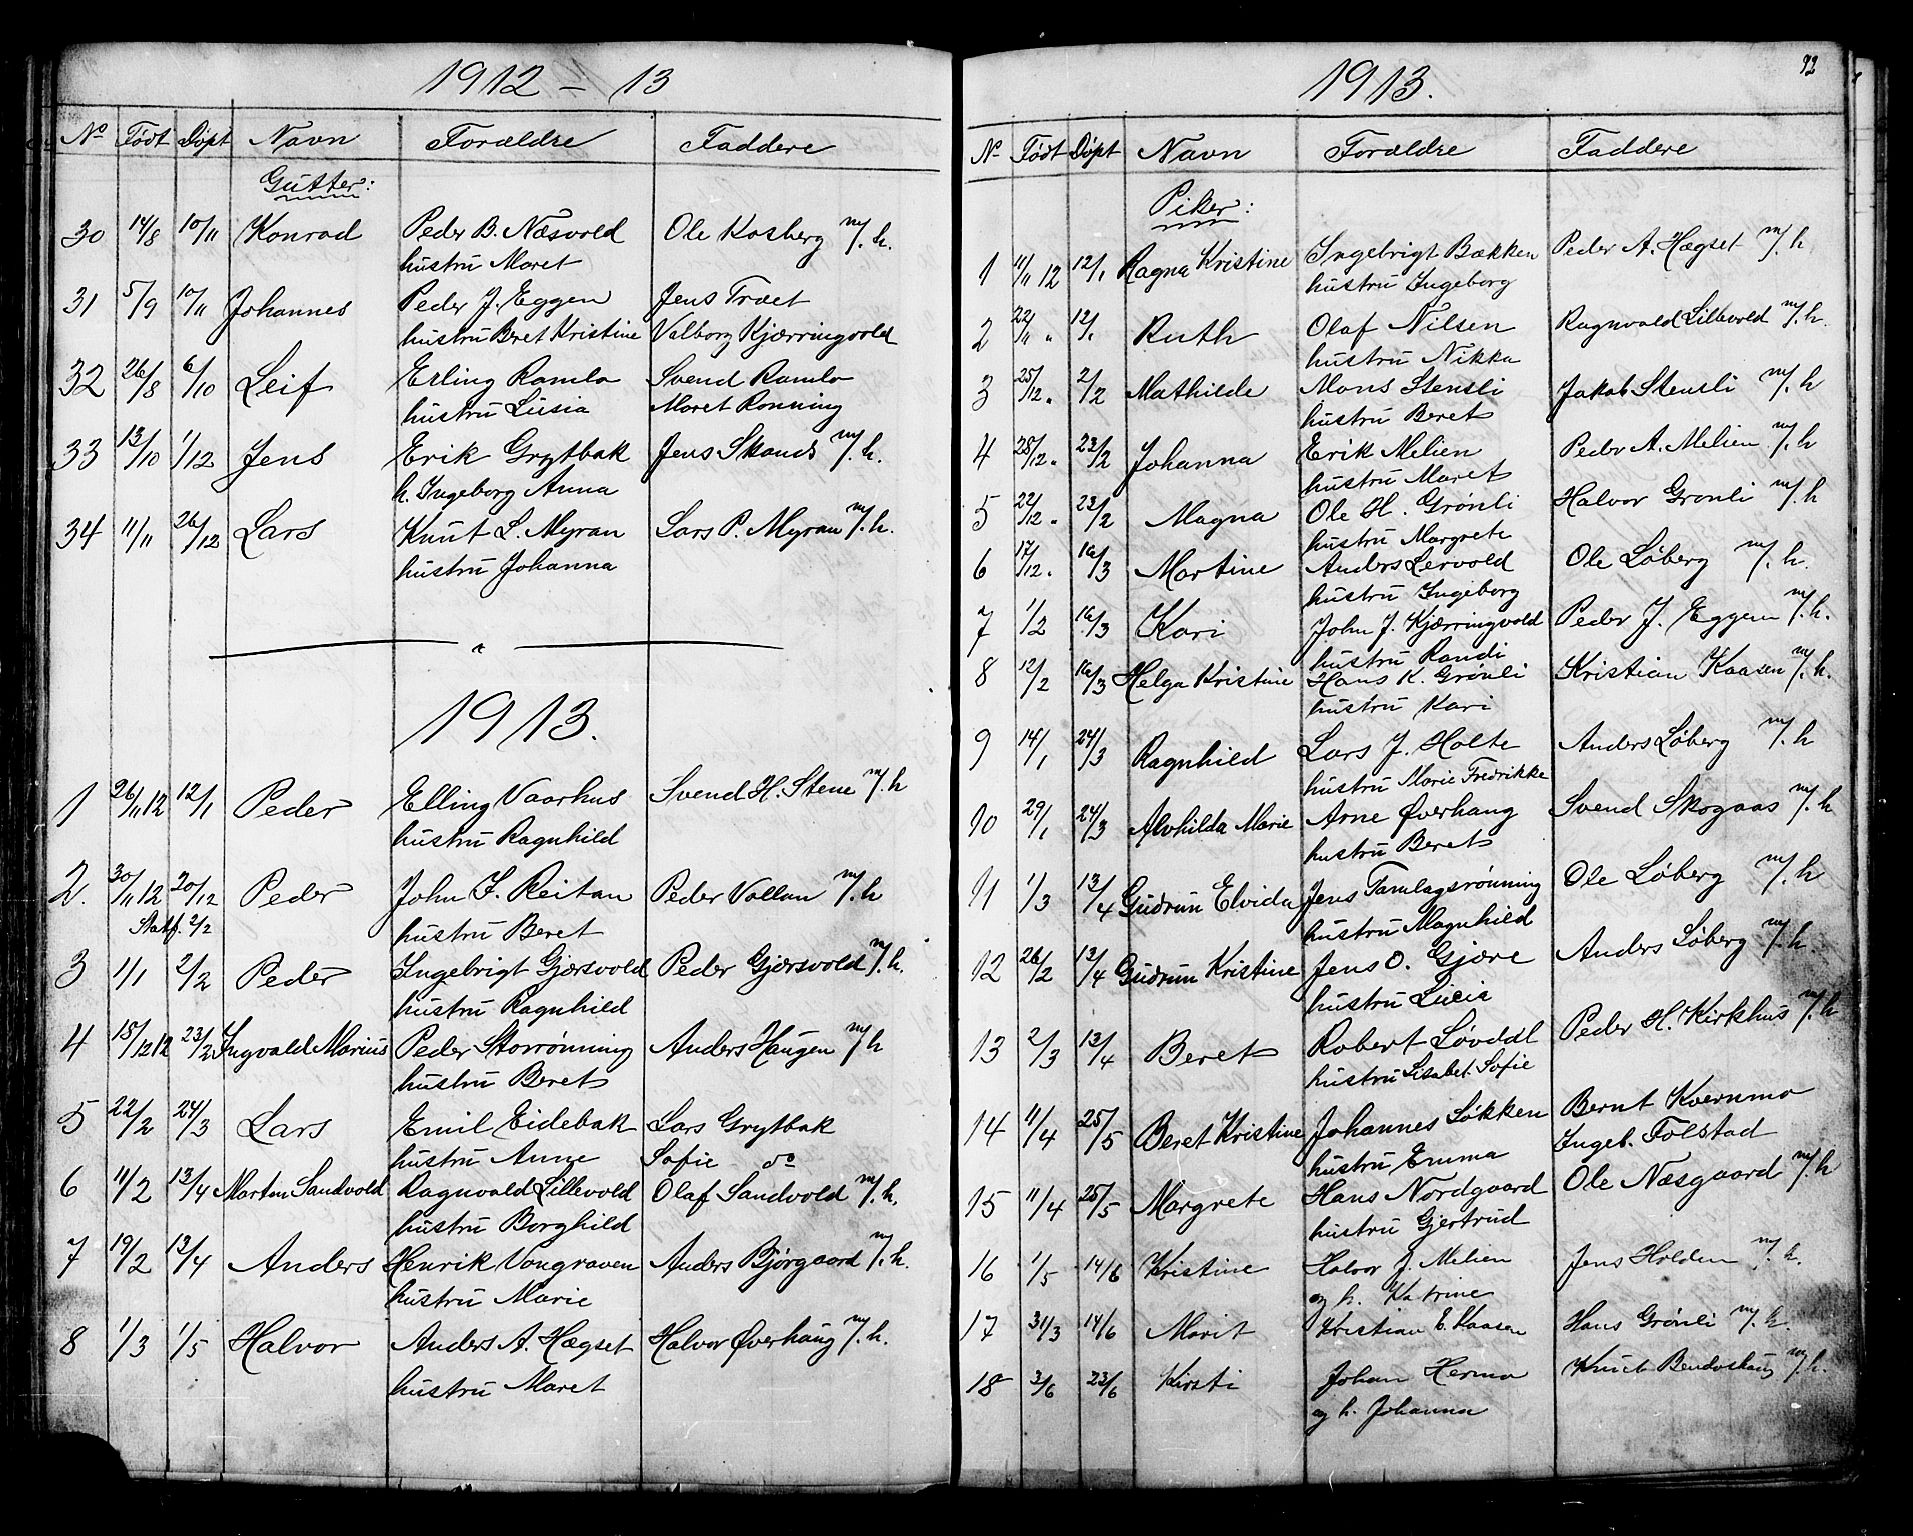 1912 – 13
No Født Døpt Navn Forældre Faddere
Gutter:
30 14/8 10/11 Konrad Peder B. Næsvold Ole Kosberg m/. h.
hustru Maret
31 5/9 10/11 Johannes Peder J. Eggen Jens Træet
hustru Beret Kristine Valborg Kjærringvold
32 26/8 6/10 Leif Erling Ramlo Svend Ramlo
hustru Lusia Maret Rønning
33 13/10 1/12 Jens Erik Grytbak Jens Skands m/. h.
h. Ingeborg Anna
34 11/11 26/12 Lars Knut L. Myran Lars P. Myran m/. h.
hustru Johanna
1913.
1 26/11 12 12/1 Peder Elling Vaarhus Svend H. Stene m/. h
hustru Ragnhild
2. 30/11 12 20/12 Peder John J. Reitan Peder Vollan m/. h
Statf. 2/2 hustru Beret
3 1/1 2/2 Peder Ingebrigt Gjærsvold Peder Gjærsvold m/. h.
hustru Ragnhild
4 15/12 12 23/2 Ingvald Marius Peder Storrønning Anders Haugen m/ h
hustru Beret
5 22/2 24/3 Lars Emil Eidebak Lars Grytbak
hustru Anne Sofie do
6 11/2 13/4 Morten Sandvold Ragnvald Lillevold Olaf Sandvold m/. h.
hustru Borghild
7 19/2 13/4 Anders Henrik Vongraven Anders Bjørgaard m/. h.
hustru Marie
8 1/3 1/5 Halvor Anders A. Hægset Halvor Øverhaug m/. h.
hustru Maret
92
1913.
No Født Døpt Navn Forældre Faddere
Piker:
1 11/11 12 12/1 Ragna Kristine Ingebrigt Bækken Peder A. Hægset m/. h
hustru Ingeborg
2 22/11 " 12/1 Ruth Olaf Nilsen Ragnvald Lillevold m/. h.
hustru Nikka
3 25/12 " 2/2 Mathilde Mons Stensli Jakob Stensli m/. h
hustru Beret
4 28/12 " 23/2 Johanna Erik Melien Peder A. Melien m/. h
hustru Maret
5 22/12 " 23/2 Magna Ole H. Grønli Halvor Grønli m/. h
hustru Margrete
6 17/12 " 16/3 Martine Anders Lervold Ole Løberg m/. h.
hustru Ingeborg
7 1/2 16/3 Kari John J. Kjærringvold Peder J. Eggen m/. h.
hustru Randi
8 12/2 16/3 Helga Kristine Hans K. Grønli Kristian Kaasen m/. h.
hustru Kari
9 14/1 24/3 Ragnhild Lars J. Holte Anders Løberg m/. h
hustru Marie Fredrikke
10 29/1 24/3 Alvhilda Marie Arne Øverhaug Svend Skogaas m/. h
hustru Beret
11 1/3 13/4 Gudrun Elvida Jens Tamlagsrønning Ole Løberg m/. h
hustru Magnhild
12 26/2 13/4 Gudrun Kristine Jens O. Gjære Anders Løberg m/. h.
hustru Lucie
13 2/3 13/4 Beret Robert Løvddl Peder H. Kirkhus m/. h
hustru Lisabet Sofie
14 11/4 25/5 Beret Kristine Johannes Løkken Bernt Kvernmo
hustru Emma Ingeb. Folstad
15 11/4 25/5 Margrete Hans Nordgaard Ole Næsgaard m/. h
hustru Gjertrud
16 1/5 14/6 Kristine Halvor J. Melien Jens Holden m/. h.
og h. Katrine
17 31/3 14/6 Marit Kristian E. Kaasen Hans Grønli m/. h.
18 3/6 23/6 Kirsti Johan Hermo Knut m/. h.
og h. Johanna